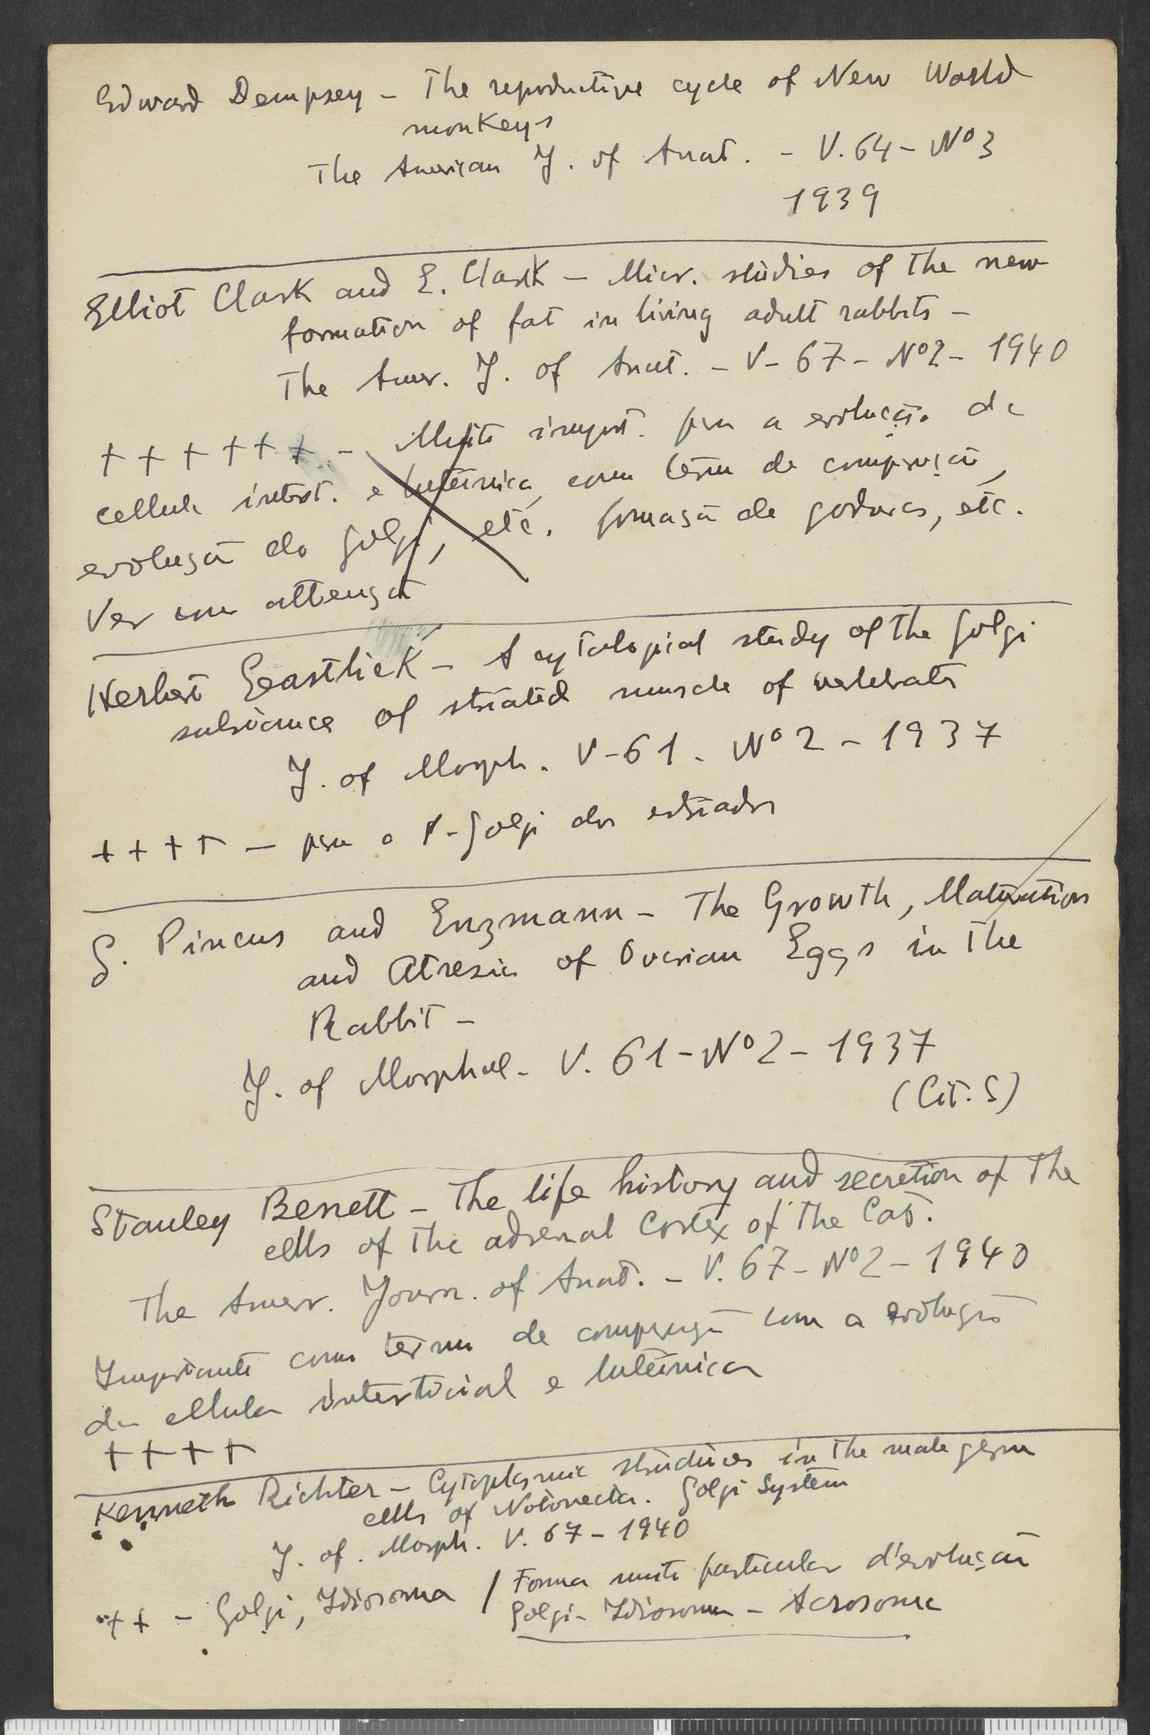 Edward Dempsey – The reproductive cycle of New World
monkeys
The American J. of Anat. – V. 64 – Nº 3
1939
Elliot Clark and E. Clark – Micr. studies of the new
formation of fat in living adult rabbits –
The Amer. J. of Anat. – V – 67 – Nº2 – 1940
+ + + + + + – Muito import. para a evolução da
cellula interst. e luteinica, como termo de comparação,
evolução do Golgi, etc. formação de goduras, etc.
Ver com attenção
Herbert Eastlick – A cytological study of the Golgi
substance of striated muscle of vertebrates
J. of Morph. V – 61 – Nº 2 – 1937
+ + + + – para o A – Golgi dos estriados
G. Pincus and Enzmann – The Growth, Maturation
and Atresia of Ovarian Eggs in the
Rabbit –
J. of Morphol – V. 61 – Nº 2 – 1937
(Cit. S)
Stanley Benett – The life history and secretion of the
cells of the adrenal Cortex of the Cat.
The Amer. Journ. of Anat. – V. 67 – Nº2 – 1940
Importante como termo de comparação com a evolução
da cellula intersticial e luteinica
+ + + +
Kenneth Richter – Cytoplasmic structures in the male germ
cells of Notonecta. Golgi System
J. of. Morph. V. 67 – 1940
++ – Golgi, Idiosoma / Forma muito particular d'evolução
Golgi – Idiosoma – Acrosome